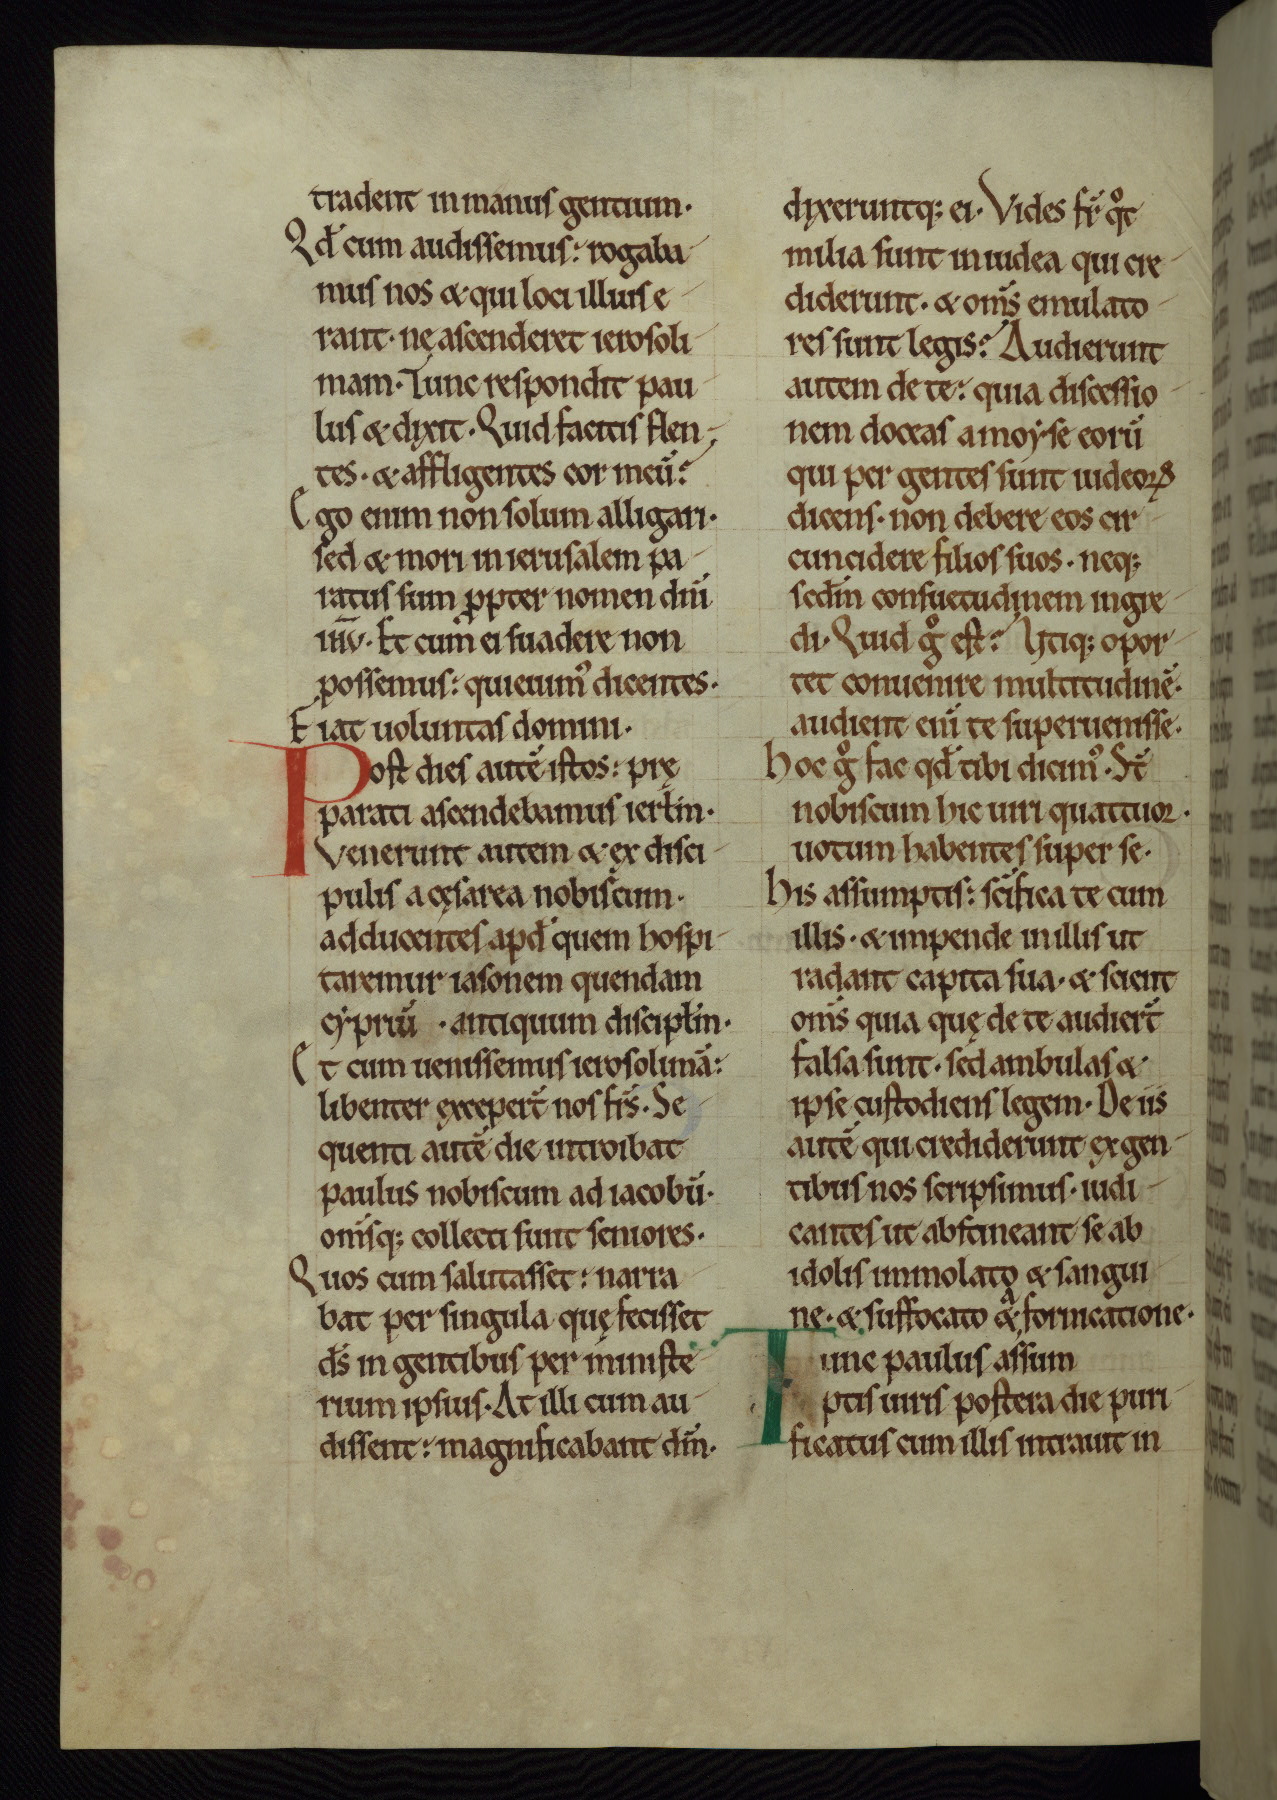 tradent in manus gentium·
Qd̅ cum audissemus: rogaba
mus nos & qui loci illius e
rant· nę ascenderet ierosoli
mam· Tunc respondit pau
lus & dixit· Quid facitis flen
tes· & affligentes cor meu̅?
Ego enim non solum alligari·
sed & mori in ierusalem pa
ratus sum ꝓpter nomen dn̅i
ih̅u· Et cum ei suadere non
possemus: quieuim᷒ dicentes·
Fiat uoluntas domini·
Post dies aute̅ istos: prę
parati ascendebamus ierl̅m·
Venerunt autem & ex disci
pulis a cęsarea nobiscum·
adducentes apd̅ quem hospi
taremur iasonem quendam
cypriu̅ · antiquum discipl̅m·
Et cum uenissemus ierosolima̅:
libenter exceper̅t nos fr̅s· Se
quenti aute̅ die introibat
paulus nobiscum ad iacobu̅·
om̅sq; collecti sunt seniores·
Quos cum salutasset: narra
bat per singula quę fecisset
d̅s in gentibus per ministe
rium ipsius· At illi cum au
dissent: magnificabant dn̅m·
dixeruntq; ei· Vides fr̅ qͦt
milia sunt in iudea qui cre
diderunt· & om̅s emulato
res sunt legis? Audierunt
autem de te: quia discessio
nem doceas a moyse eoru̅
qui per gentes sunt iudeoꝝ
dicens· non debere eos cir
cuncidere filios suos· neq;
scd̅m consuetudinem ingre
di· Quid gͦ est? Utiq; opor
tet conuenire multitudine̅·
audient eni̅ te superuenisse·
hoc gͦ fac qd̅ tibi dicim᷒· St̅
nobiscum hic uiri quattuor·
uotum habentes super se·
his assumptis: sc̅ifica te cum
illis· & impende in illis ut
radant capita sua· & scient
om̅s quia quę de te audier̅t
falsa sunt· sed ambulas &
ipse custodiens legem· De iis
aute̅ qui crediderunt ex gen
tibus nos scripsimus· iudi
cantes ut abstineant se ab
idolis immolato & sangui
ne· & suffocato & fornicatione·
Tunc paulus assum
ptis uiris postera die puri
ficatus cum illis intrauit in